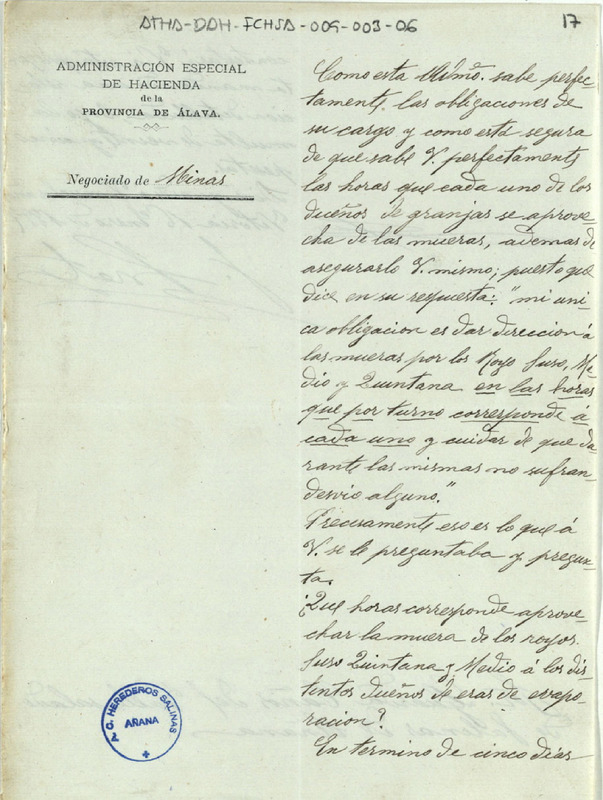 ATHA-DAH-FCHSA-009-003-06
17
ADMINISTRACIÓN ESPECIAL
DE HACIENDA
de la
PROVINCIA DE ÁLAVA.
Negociado de Minas
Como esta Admón. sabe perfec-
tamente las obligaciones de
su cargo y como está segura
de que sabe V. perfectamente
las horas que cada uno de los
dueños de granjas se aprove-
cha de las mueras, ademas de
asegurarlo V. mismo; puesto que
dice en su respuesta: "mi uni-
ca obligacion es dar direccion á
las mueras por los Royo Suso, Me-
dio y Quintana en las horas
que por turno corresponde á
cada uno y cuidar de que du-
rante las mismas no sufran
desvio alguno."
Precisamente eso es lo que á
V. se le preguntaba y pregun-
ta.
¿Que horas corresponde aprove-
char la muera de los royos
Suso Quintana y Medio á los dis-
tintos dueños de eras de evapo-
racion?
En termino de cinco dias
C. HEREDEROS SALINAS
AÑANA